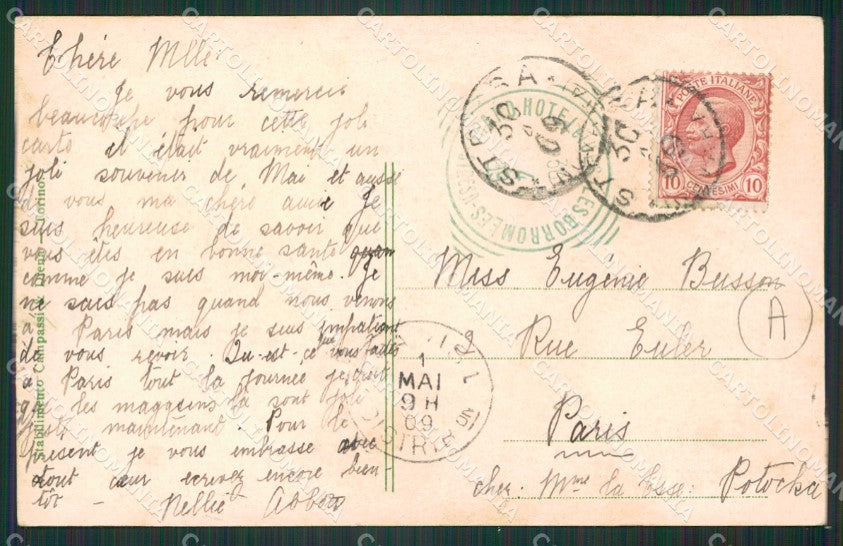 Chére Mlle
Je vous remercie
beaucoupe pour cette joli
carto el était vraiment un
joli souvenir de Mai et aussi
de vous ma chére amie Je
suis heureuse de savoir que
vous êtes en bonne santé
comme je suis moi-même. Je
ne sais pas quand nous venons
a Paris mais je suis impatient
de vous revoir. Qu-est-ce que vous faites
a Paris tout la journée je crois
que les maggsins la sont joli
juste maintenant. Pour le
present je vous embrasse avec
tout cœur ecrivez encore bien
tôt - Nellie
Stabilimento Campassi e Diena - Torino
GRAND HOTEL
ILES BORROMEES
STRESA
30
09
STRESA
30
POSTE ITALIANE
10 CENTESIMI 10
Miss Eugénie Busson
2 Rue Euler
Paris
chez Mme la Csse: Potocka
A
1
MAI
9 H
09
DISTRIB